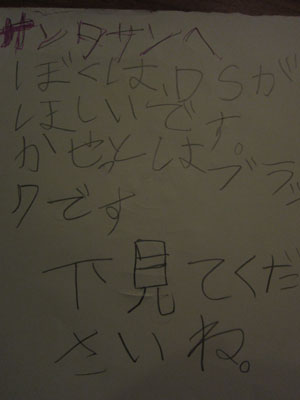 サンタサンへ
ぼくは、DSが
ほしいです。
かせとはブラッ
クです
下見てくだ
さいね。